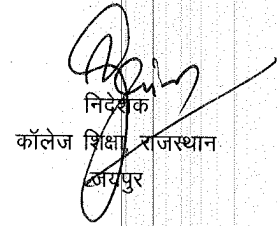 निदेशक
कॉलेज शिक्षा, राजस्थान
जयपुर